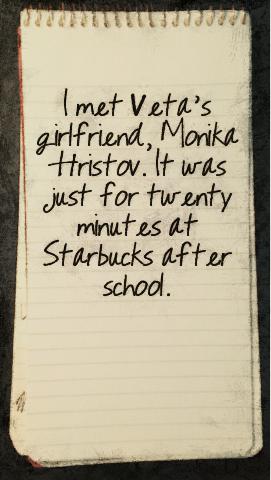 I met Veta's
girlfriend, Monika
Hristov. It was
just for twenty
minutes at
Starbucks after
school.